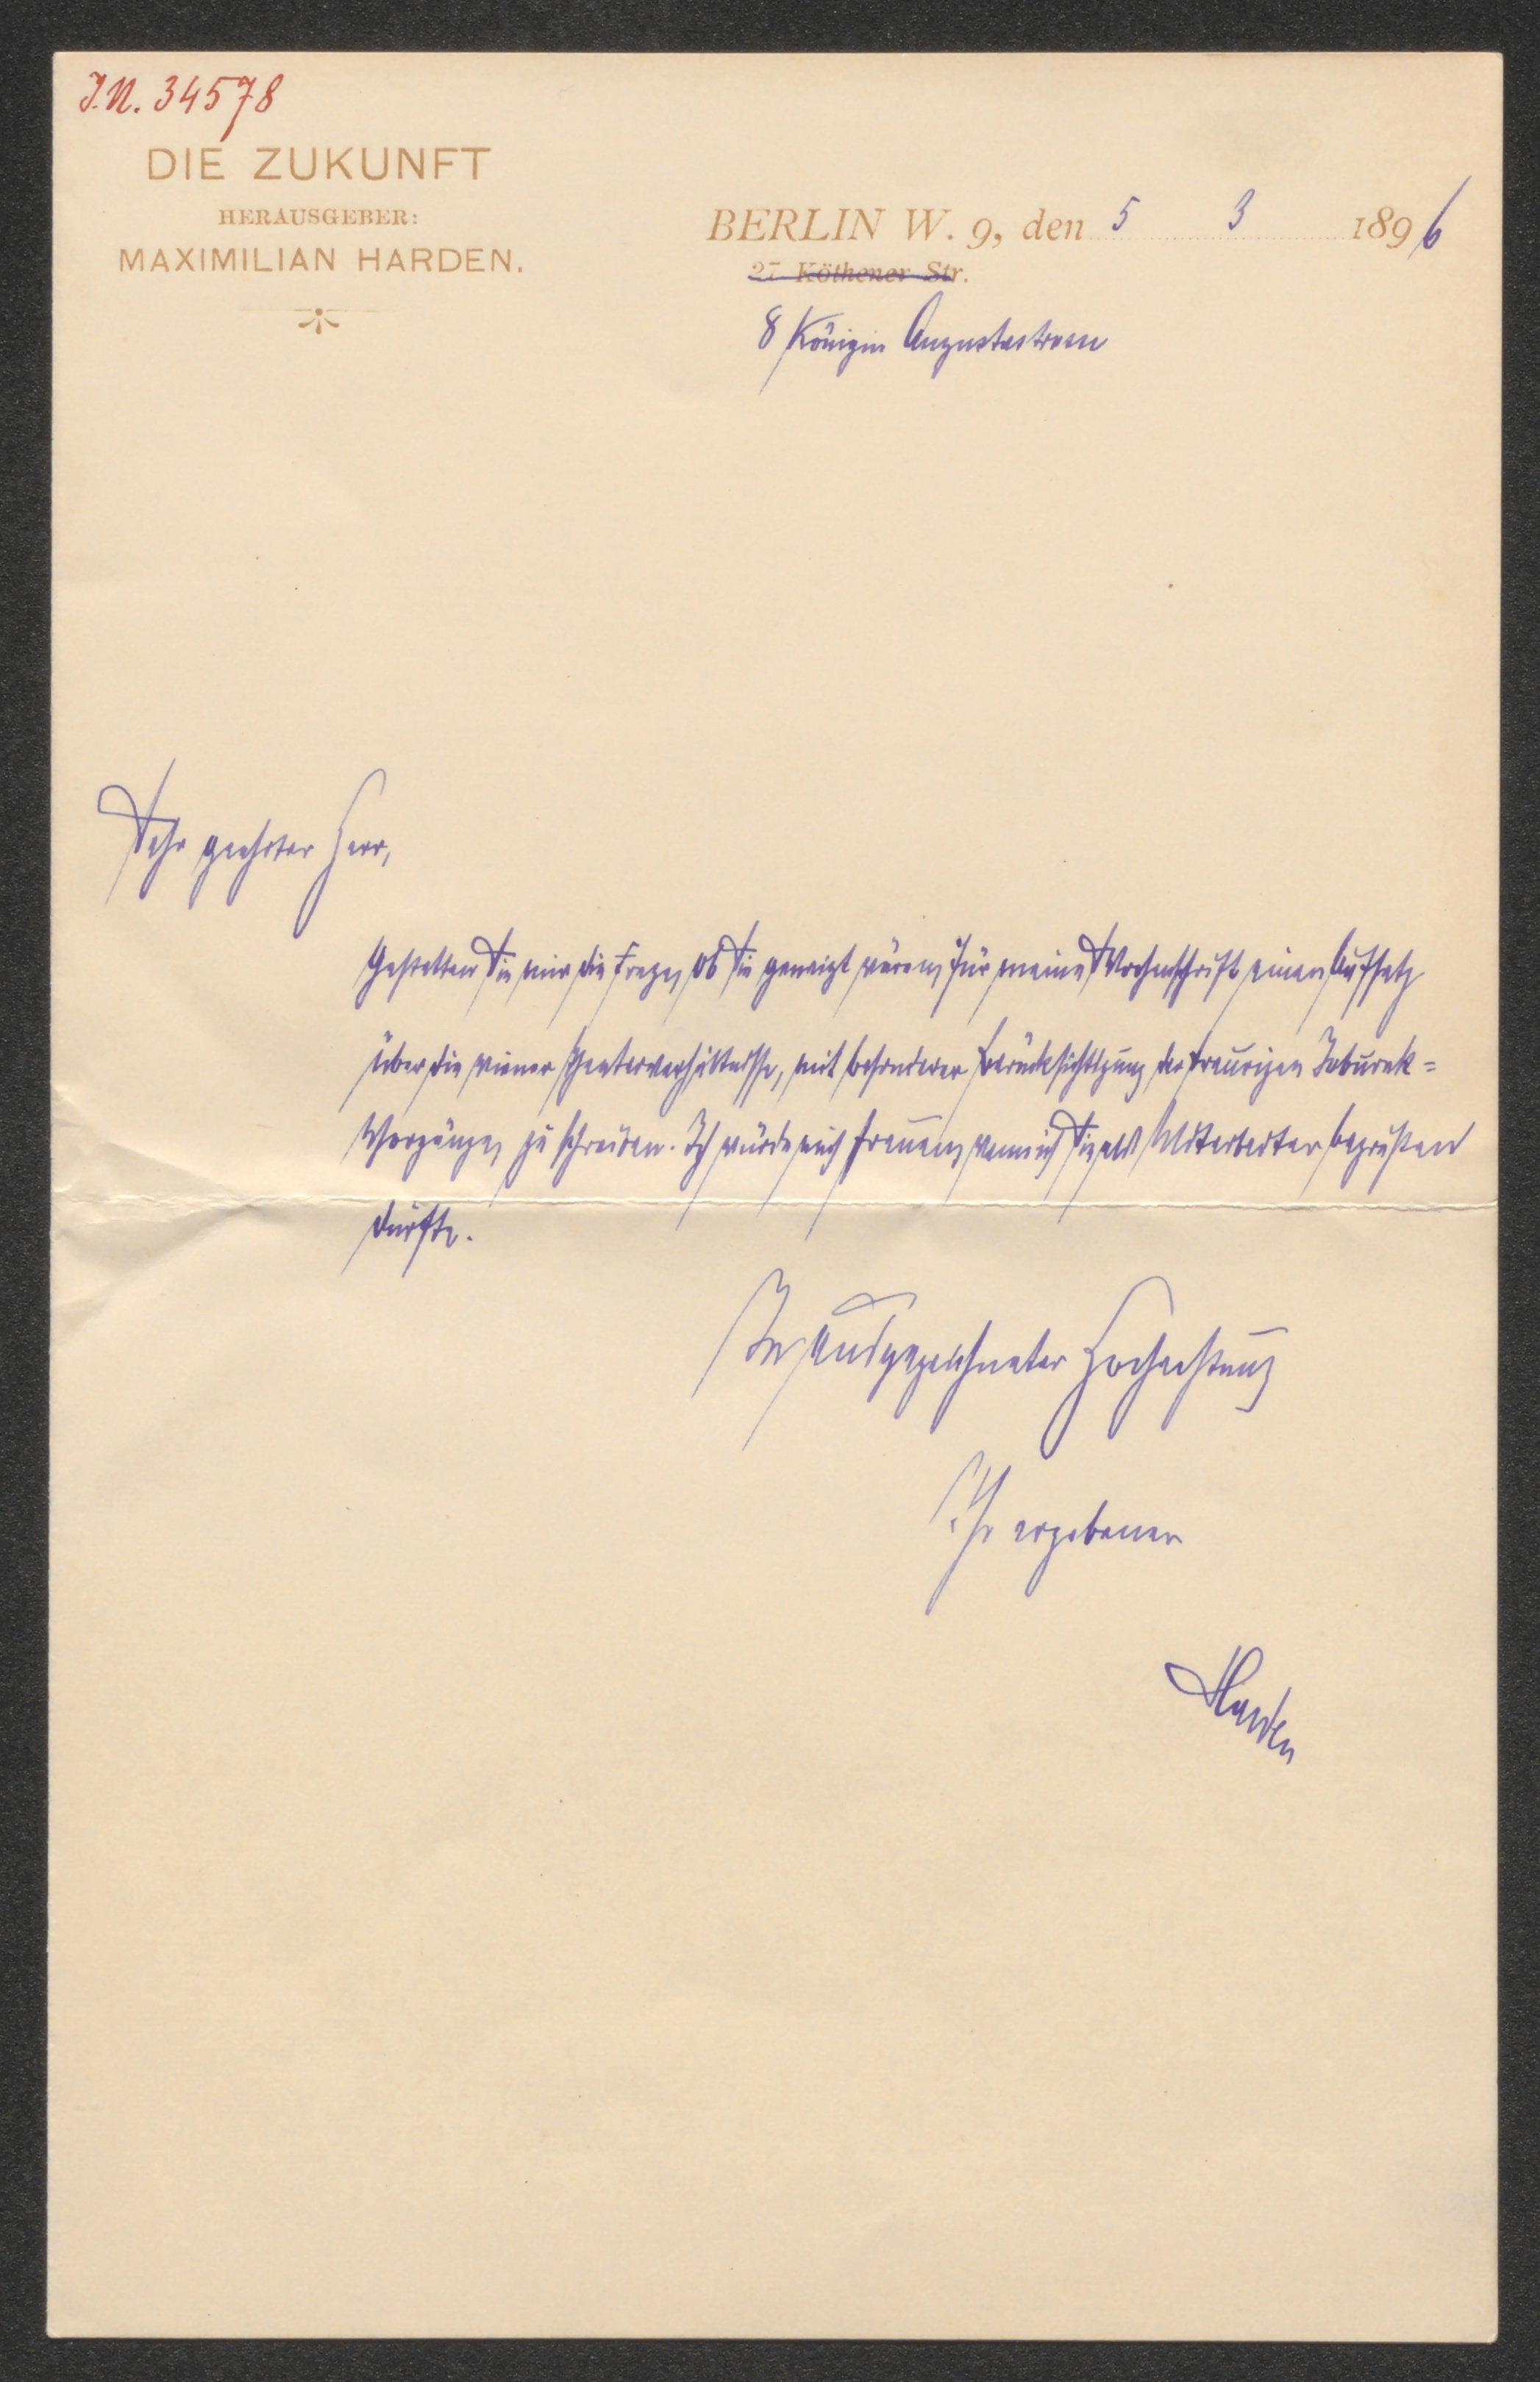 I.N. 34578
DIE ZUKUNFT
HERAUSGEBER:
MAXIMILIAN HARDEN.
BERLIN W. 9, den 5 3 1896
27 Köthener Str.
8 Königin Augustastrasse
Sehr geehrter Herr,
Gestatten Sie mir die Frage, ob Sie geneigt wären, für meine Wochenschrift einen Aufsatz
über die wiener Theaterverhältnisse, mit besonderer Berücksichtigung der traurigen
Vorgänge, zu schreiben. Ich würde mich freuen, wenn ich Sie als Mitarbeiter begrüßen
dürfte.
In ausgezeichneter Hochachtung
Ihr ergebener
Harden